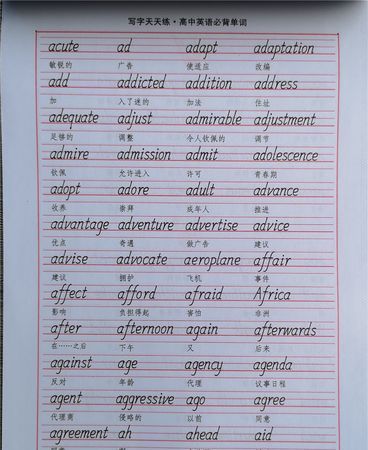 写字天天练·高中英语必背单词
acute ad adapt adaptation
敏锐的 广告 使适应 改编
add addicted addition address
加 入了迷的 加法 住址
adequate adjust admirable adjustment
足够的 调整 令人钦佩的 调节
admire admission admit adolescence
钦佩 允许进入 许可 青春期
adopt adore adult advance
收养 崇拜 成年人 推进
advantage adventure advertise advice
优点 奇遇 做广告 建议
advise advocate aeroplane affair
建议 拥护 飞机 事件
affect afford afraid Africa
影响 负担得起 害怕 非洲
after afternoon again afterwards
在……之后 下午 又 后来
against age agency agenda
反对 年龄 代理 议事日程
agent aggressive ago agree
代理商 侵略的 以前 同意
agreement ah ahead aid